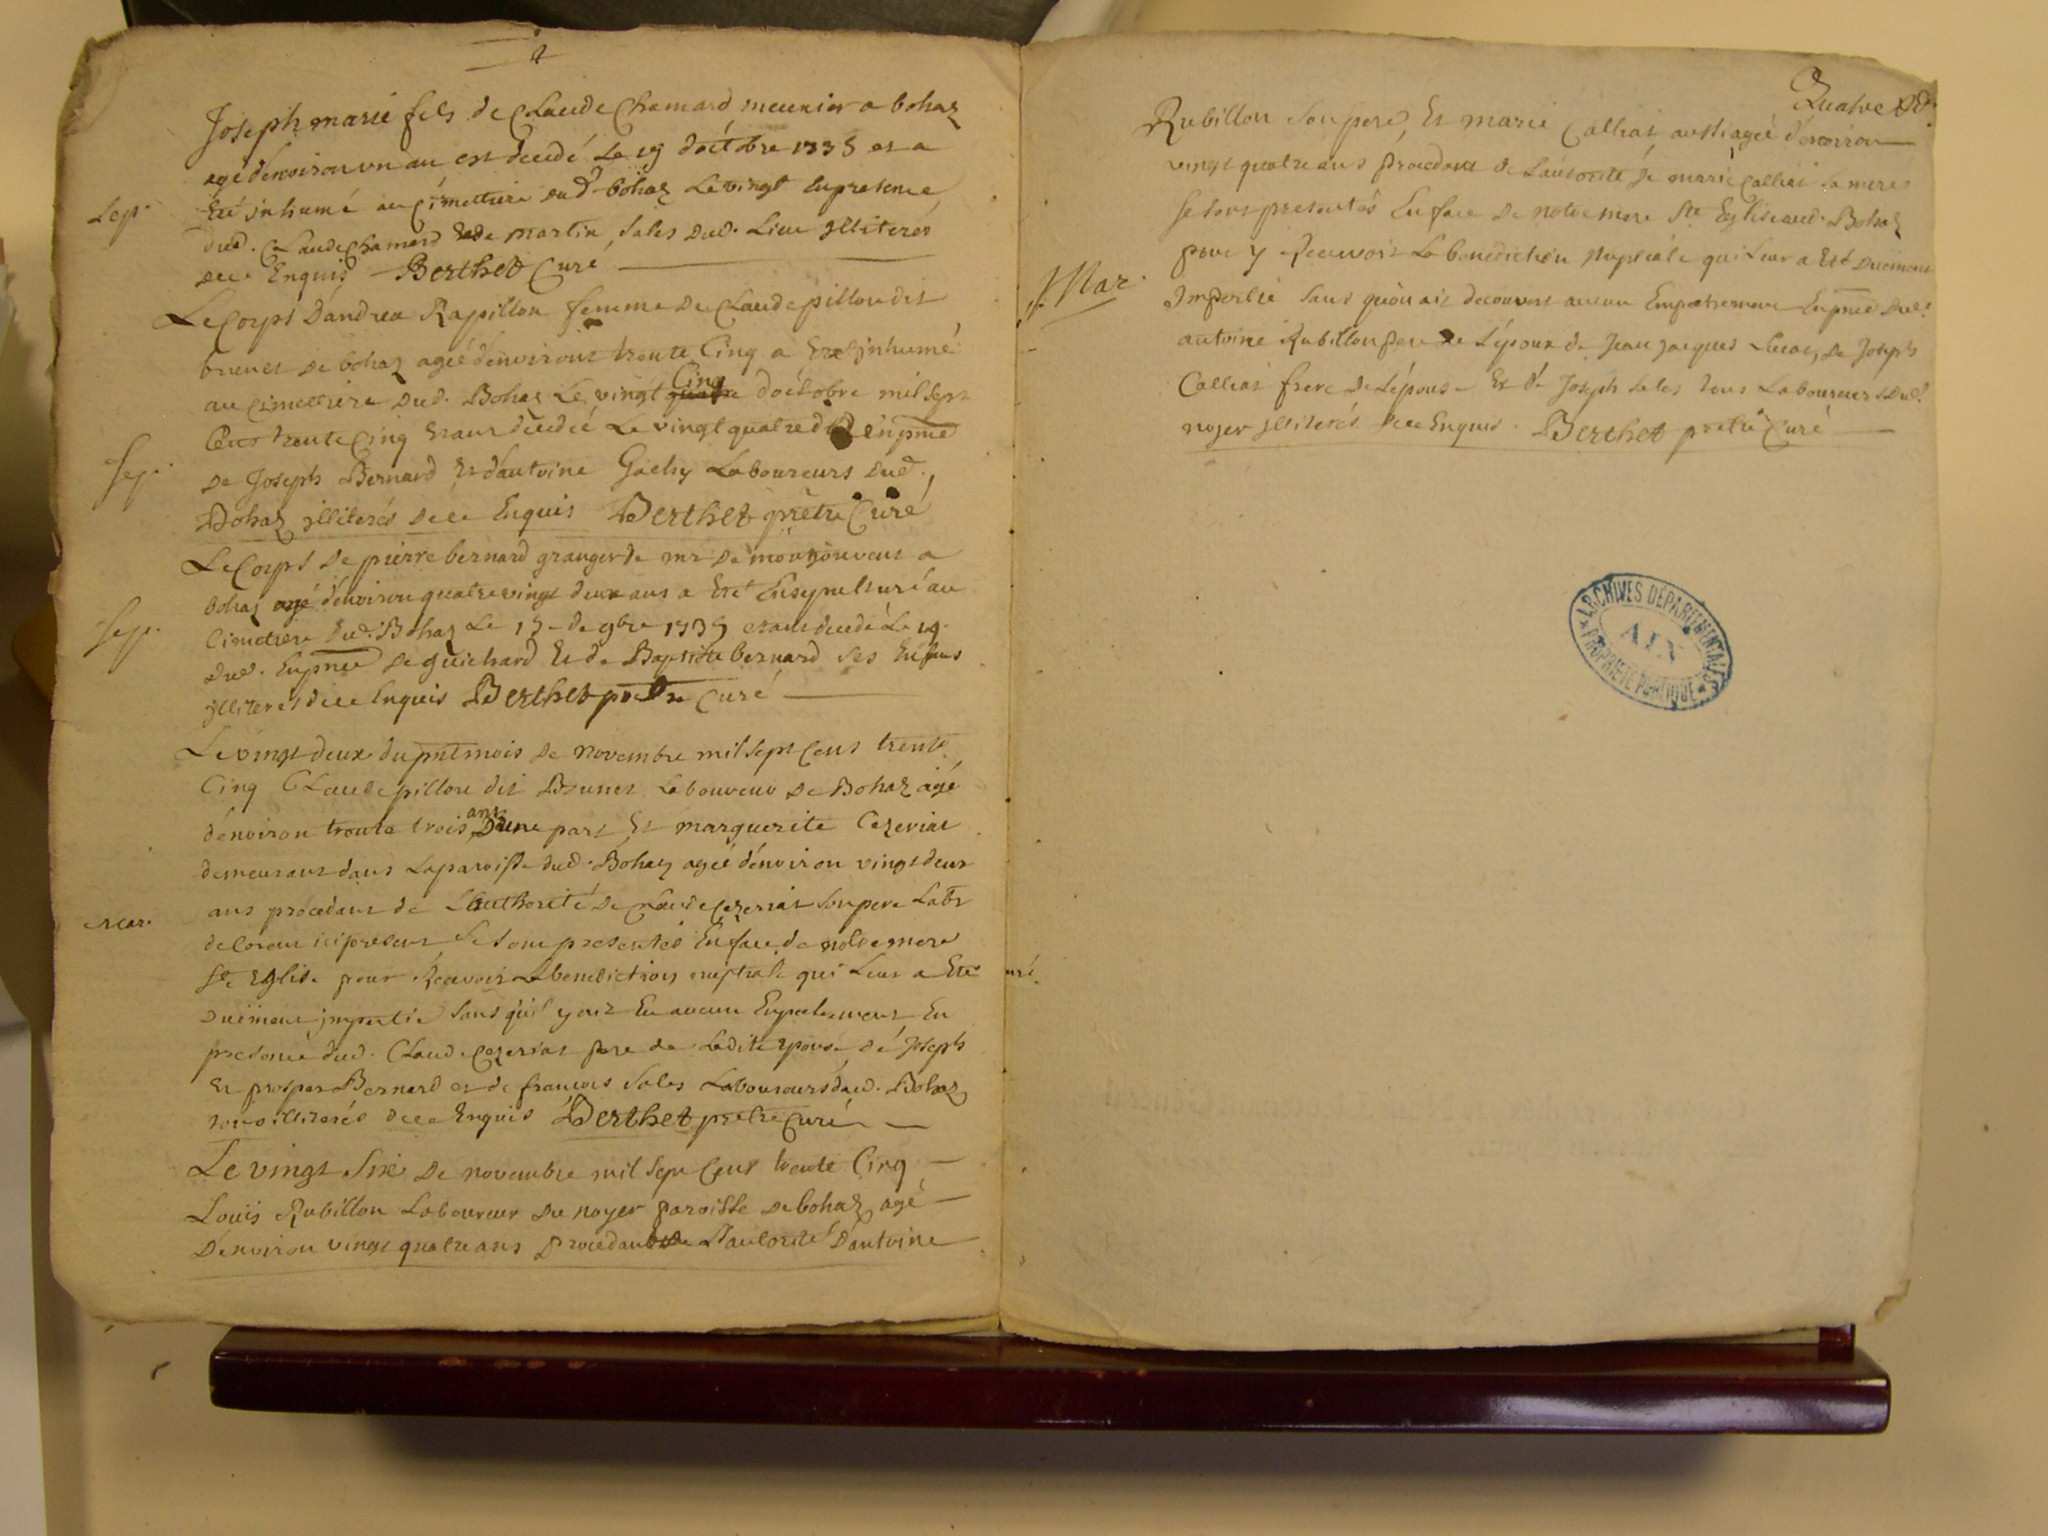 2
Joseph marie fils de Claude Chamard meunier a bohaz
agé denviron un an est decedé Le 19 d'octobre 1735 et a
Sep.
Eté jnhumé au Cimettiere dud. bohaz Le vingt En presence
dud. Claude Chamard et de martin Sales dud. Lieu jlliterés
de ce Enquis Berthet Curé
Le Corps d'andrea Rapillon femme de Claude pillon dit
brunet de bohaz agée d'environt trente Cinq a Eté jnhumé
au Cimettiere dud. Bohaz Le vingt quatre Cinq d'octobre mil sept
Cens trente Cinq Etant decedée Le vingt quatre dud En pnce
Sep.
de Joseph Bernard Et d'antoine Gachy Laboureurs dud.,
Bohaz jlliterés de ce Enquis Berthet prêtre Curé
Le Corps de pierre bernard granger de mr de montjouvent a
bohaz agé d'environ quatre vingt deux ans a Eté Ensepulturé au
Sep.
Cimetiere dud. Bohaz Le 15 de 9bre 1735 etant decedé Le 14
dud. En pnce de guichard Et de Baptiste bernard ses Enfans
jlliterés de ce Enquis Berthet prêtre Curé
Le vingt deux du pnt mois de novembre mil sept Cens trente
Cinq Claude pillon dit Brunet Laboureur de Bohaz agé
d'environ trente trois ans D'une part Et marguerite Cezeriat
demeurant dans La paroisse dud. Bohaz agée d'environ vingt deux
mar.
ans procedant de L'authorité de Claude Cezeriat son pere Labr
de Coran ici present Se sont presentés En face de notre mere
Ste Eglise pour Recevoir La benediction nuptiale qui Leur a Eté
Duëment jmpartie sans qu'il y ait Eu aucun Empechement En
presence dud. Claude Cezeriat pere de Ladite Epouse de Joseph
Et prosper Bernard et de francois Sales Laboureurs dud. Bohaz
tous illiterés de ce Enquis Berthet prêtre Curé
Le vingt Six de novembre mil Sept Cent trente Cinq
Louis Rubillon Laboureur du noyer paroisse de bohaz agé
D'environ vingt quatre ans procedant de L'autorité d'antoine
Quatre
Rubillon Son pere, Et marie Calliat aussi agée d'environ
vingt quatre ans procedant de L'autorité de marie Calliat sa mere
Se sont presentés En face de notre mere Ste Eglise aud. Bohaz
pour y Recevoir La benediction Nuptiale qui Leur a Eté Duëment
Mar.
Impartie sans qu'on ait decouvert aucun Empechement En pnce dud.
antoine Rubillon pere de L'époux de Jean jacques Lucas, de Joseph
Calliat frere de L'épouse Et de Joseph Sales tous Laboureurs dud.
noyer jlliterés de ce Enquis. Berthet prêtre Curé
ARCHIVES DÉPARTEMENTALES
AIN
PROPRIÉTÉ PUBLIQUE